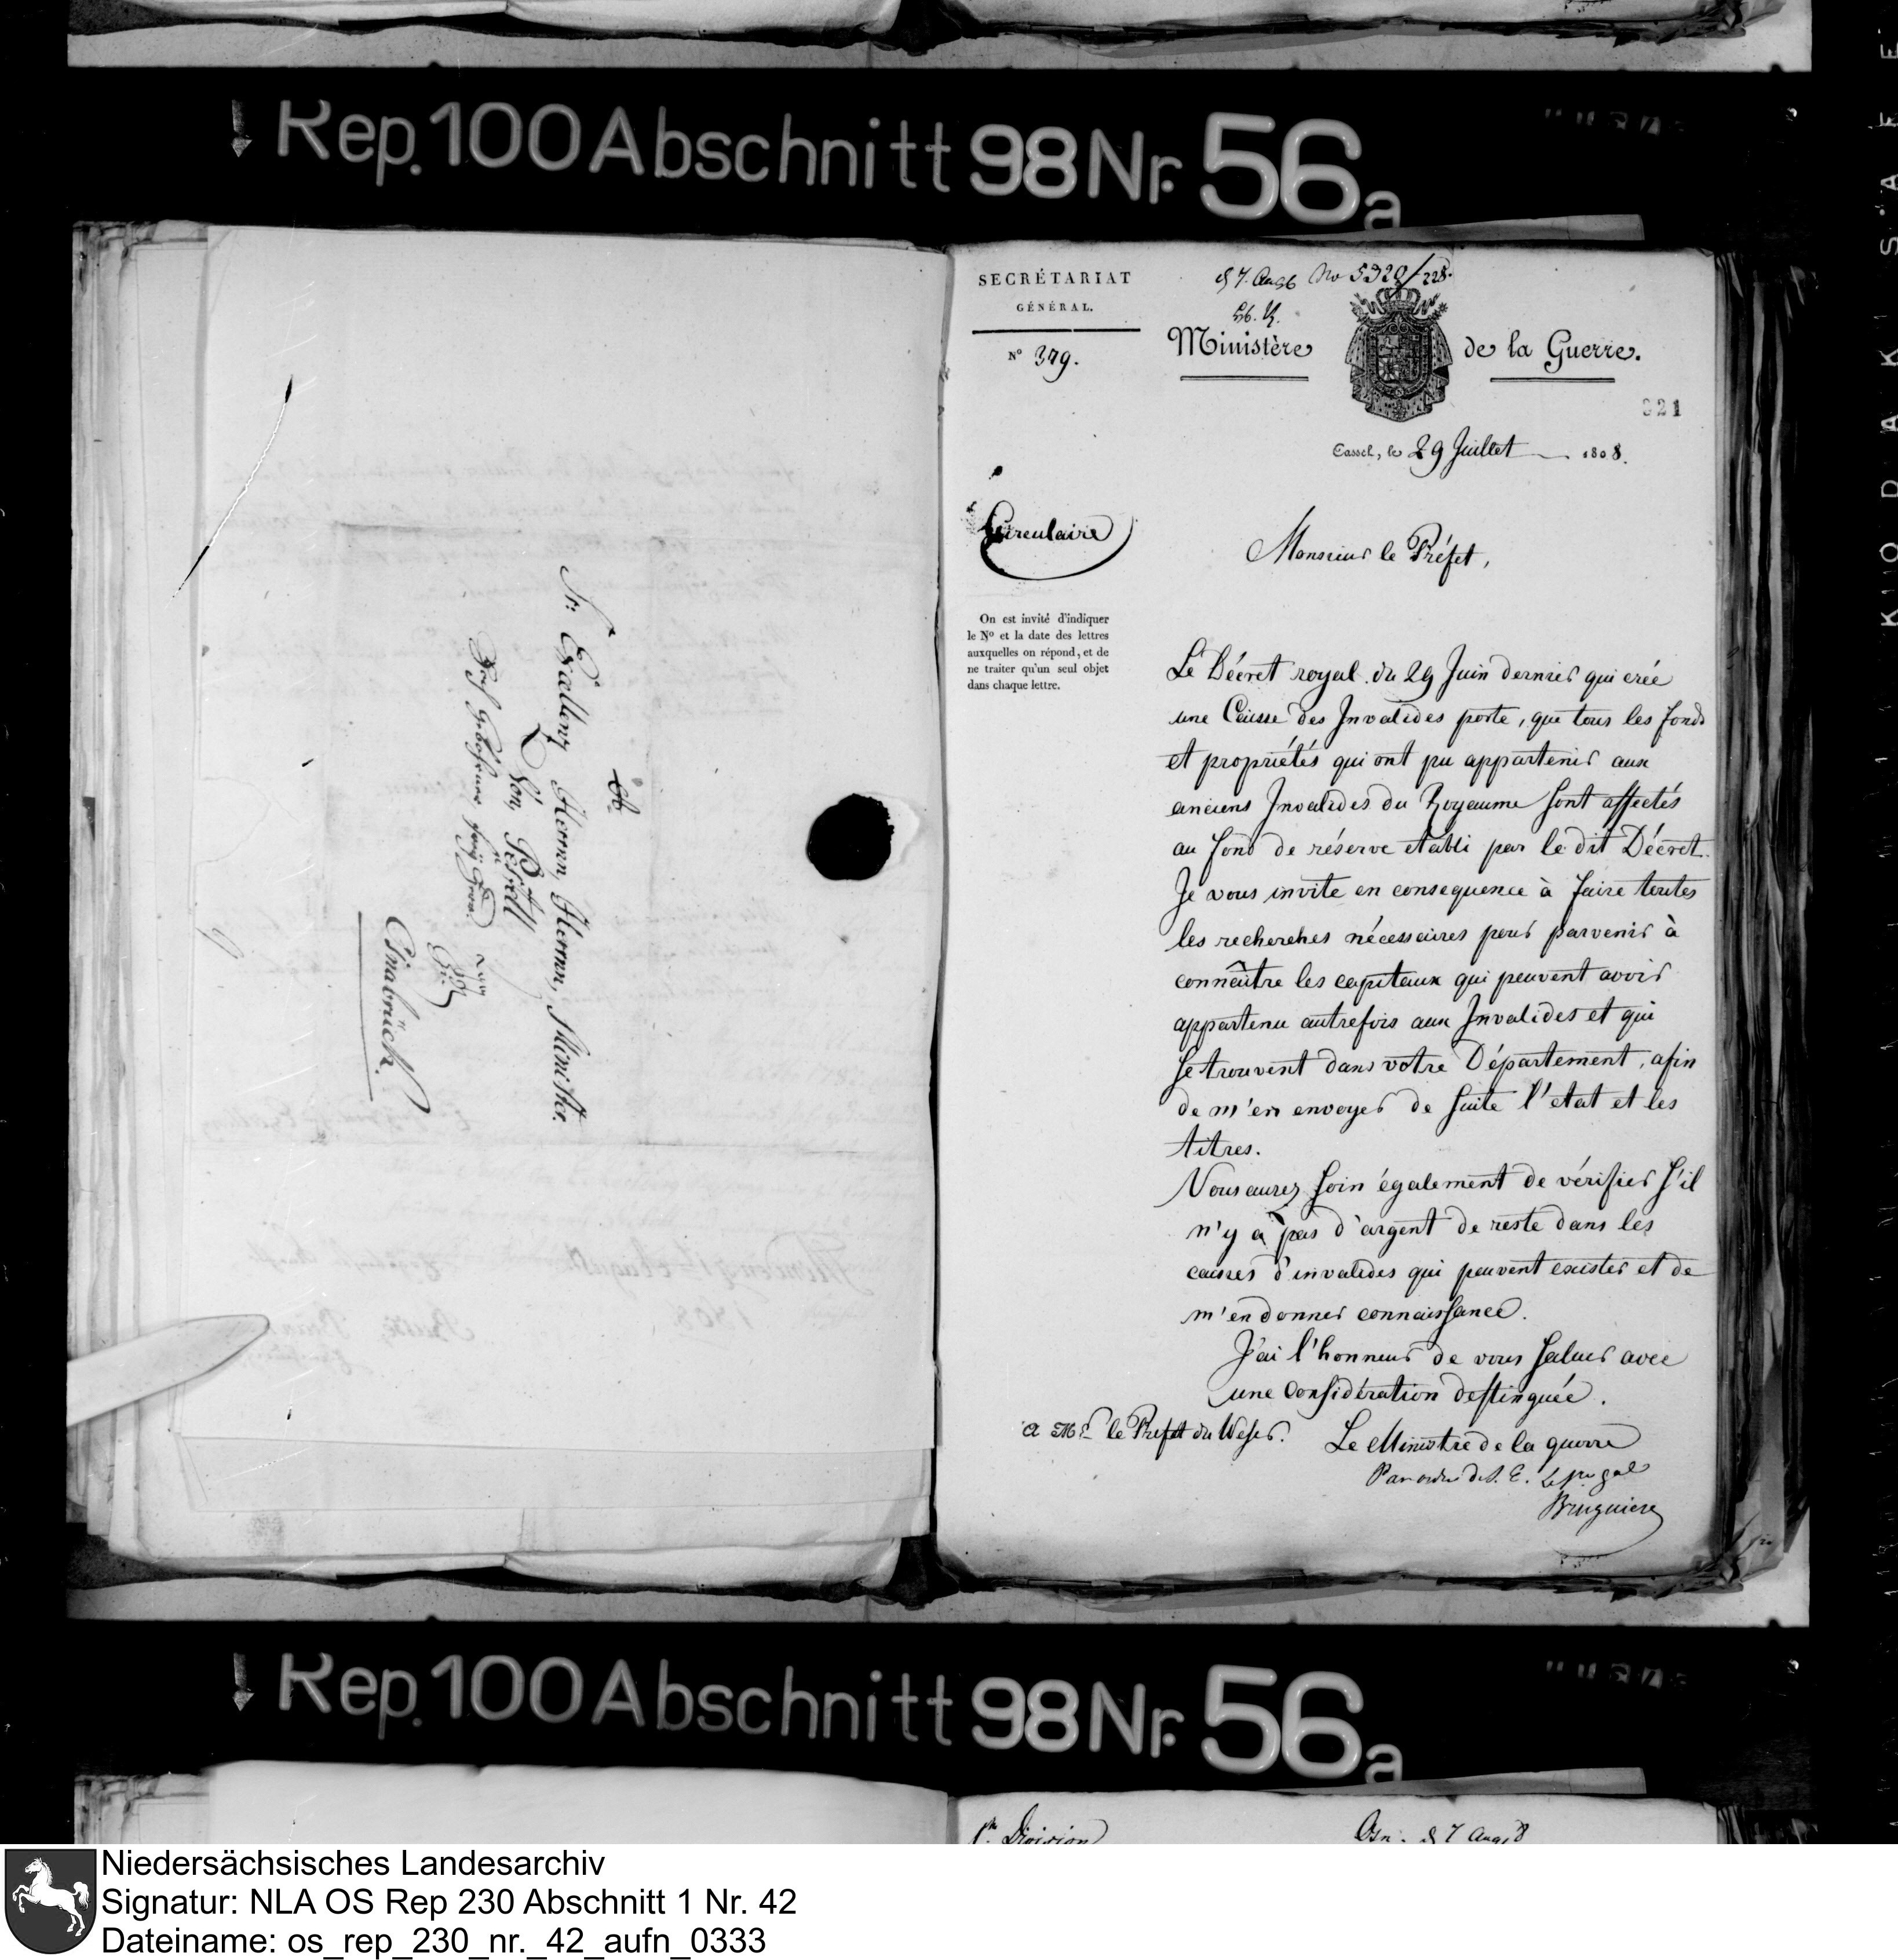 Rep. 100 Abschnitt 98 Nr. 56a
Sr. Excellenz Herrn, Herrn, Minister
Von Pestell
Osnabrück.
SECRÉTARIAT
GÉNÉRAL.
N° 379.
No 5320/228.
Ministère de la Guerre.
321
Cassel, le 29 Juillet 1808.
Circulaire
Monsieur le Préfet,
On est invité d'indiquer
le N° et la date des lettres
auxquelles on répond, et de
ne traiter qu'un seul objet
dans chaque lettre.
Le Décret royal du 29 Juin dernier qui crée
une Caisse des Invalides porte, que tous les fonds
et propriétés qui ont pu appartenir aux
anciens Invalides du Royaume sont affectés
au fond de réserve etabli par le dit Décret.
Je vous invite en consequence à faire toutes
les recherches nécessaires pour parvenir à
connaître les capitaux qui peuvent avoir
appartenu autrefois aux Invalides et qui
se trouvent dans votre Département, afin
de m'en envoyer de suite l'etat et les
titres.
Vous aurez soin également de vérifier s'il
n'y a pas d'argent de reste dans les
caisses d'invalides qui peuvent exister et de
m'en donner connaissance.
J'ai l'honneur de vous saluer avec
une considération distinguée.
A Mr le Prefet du Weser.
Le Ministre de la guerre
Par ordre de S. E. Le Sre gal
Bruguiere
Rep. 100 Abschnitt 98 Nr. 56a
1re Division
Osn. 7 Aug
Niedersächsisches Landesarchiv
Signatur: NLA OS Rep 230 Abschnitt 1 Nr. 42
Dateiname: os_rep_230_nr._42_aufn_0333